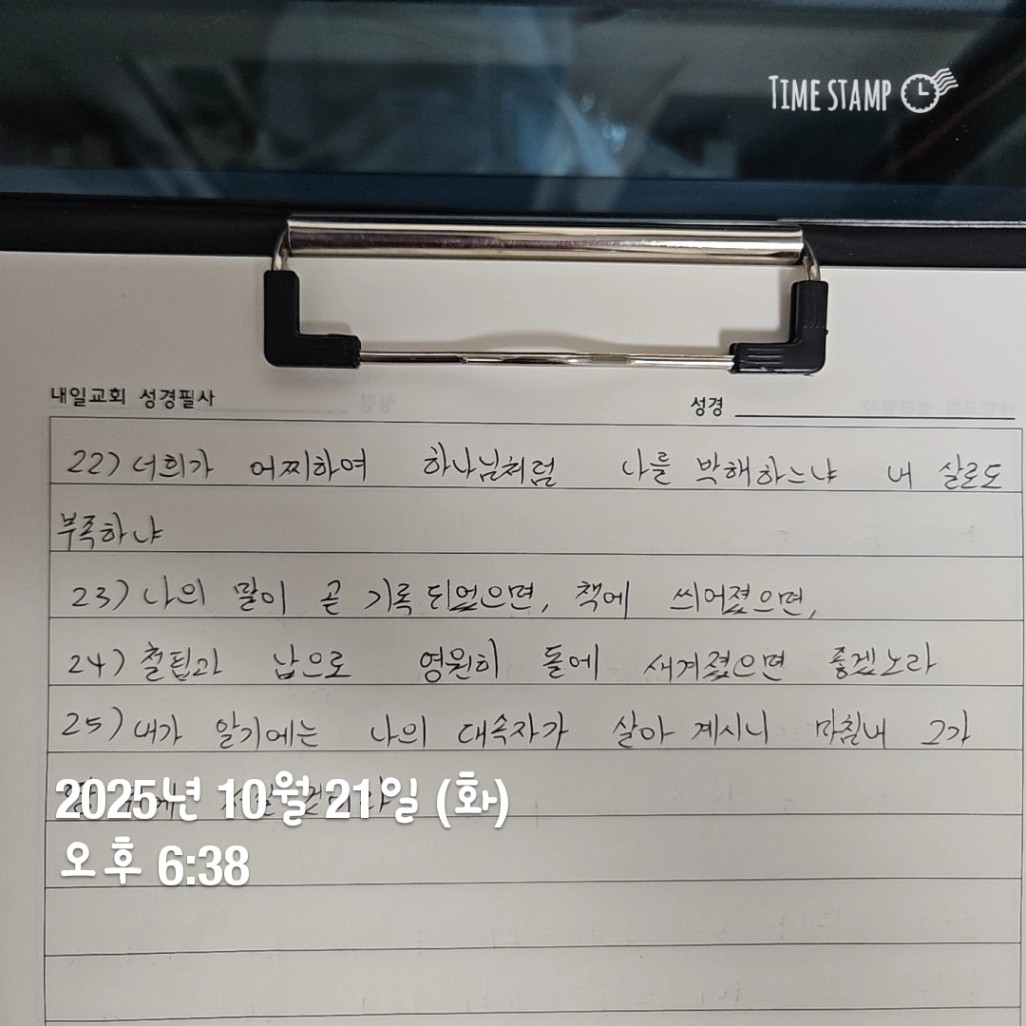 TIME STAMP
내일교회 성경필사 성경
22) 너희가 어찌하여 하나님처럼 나를 박해하느냐 내 살로도
부족하냐
23) 나의 말이 곧 기록 되었으면, 책에 씌어졌으면,
24) 철필과 납으로 영원히 돌에 새겨졌으면 좋겠노라
25) 내가 알기에는 나의 대속자가 살아 계시니 마침내 그가
2025년 10월 21일 (화)
오후 6:38